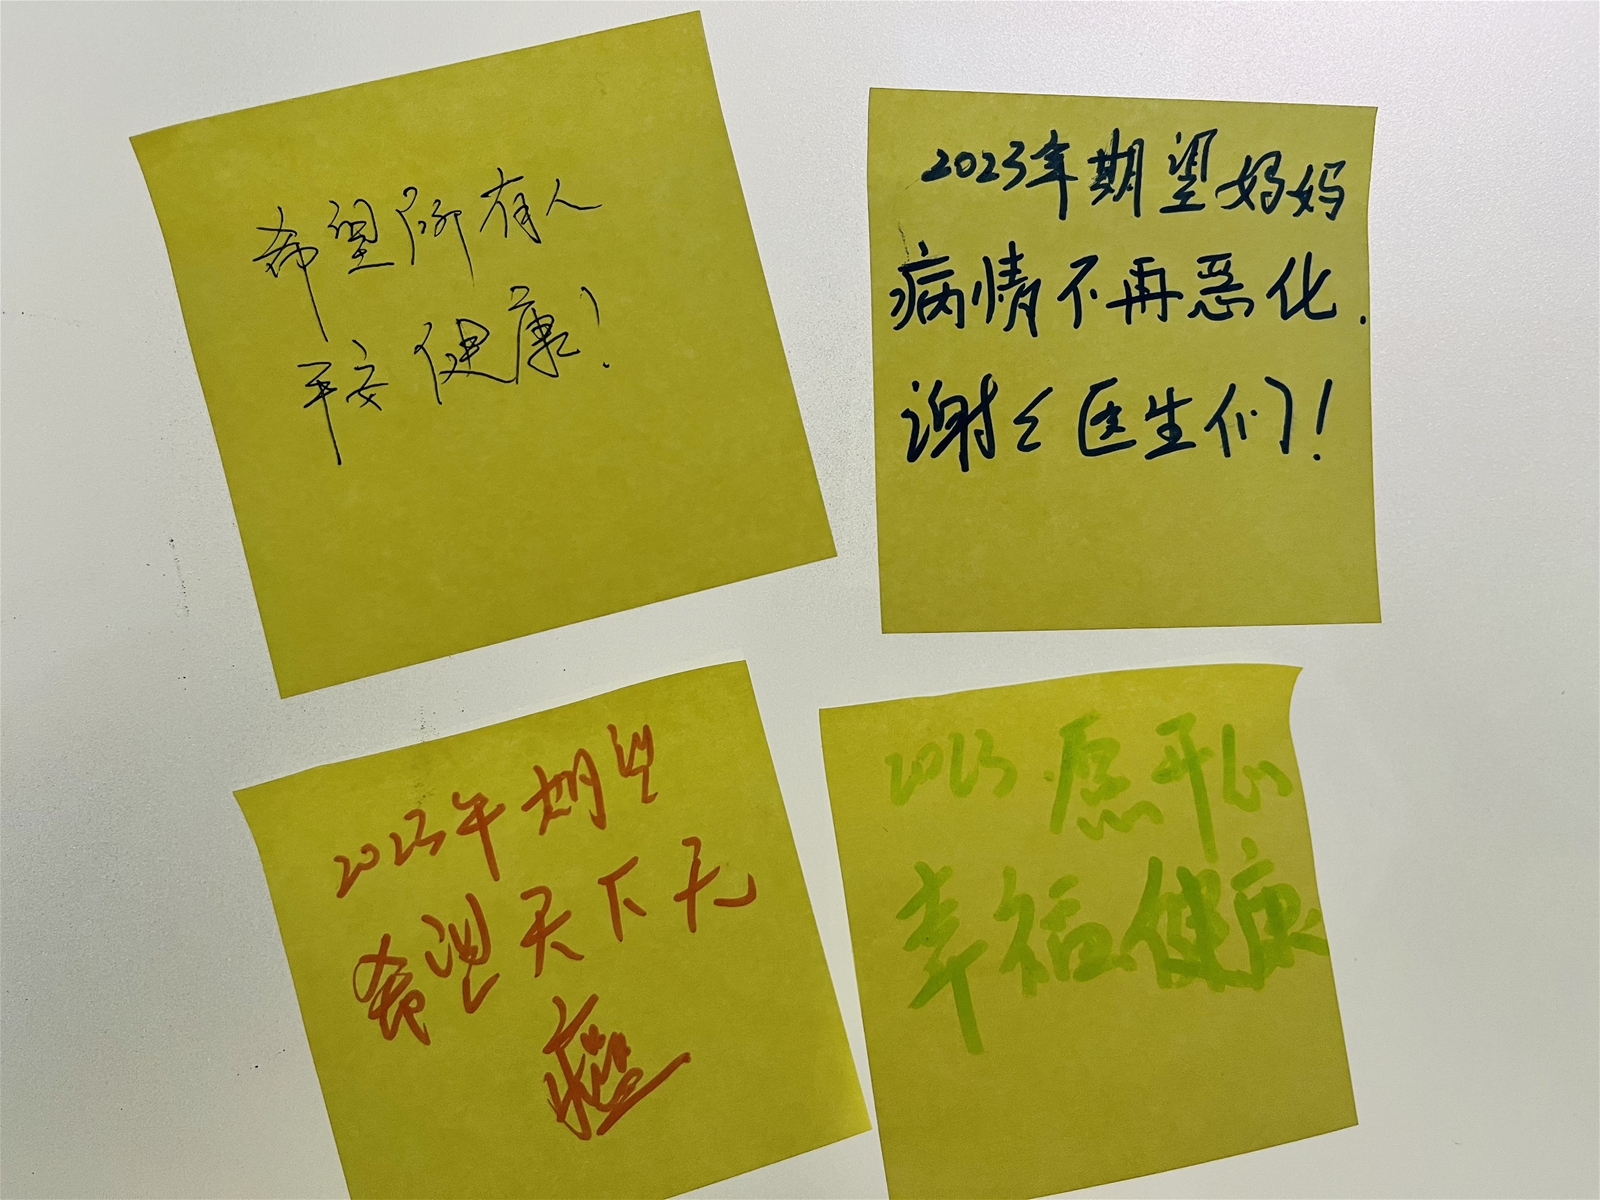 希望所有人
平安健康！
2023年期望妈妈
病情不再恶化.
谢々医生们！
2023年期望
希望天下无
癌
2023.愿开心
幸福健康